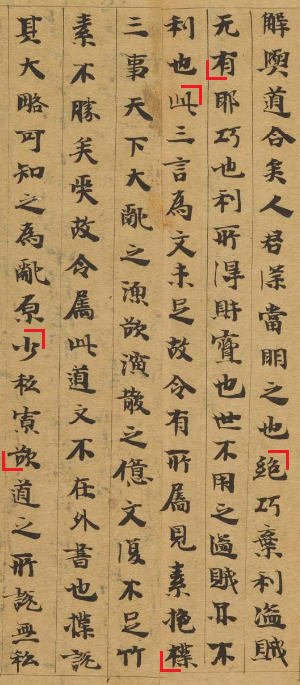 解與道合矣人君深當明之也絕巧棄利盜賊
无有耶巧也利所得財寶也世不用之盜賊亦不
利也此三言為文未足故令有所屬見素抱樸
三事天下大亂之源欲演散之億文復不足竹
素不勝矣受故令屬此道文不在外書也揲說
其大略可知之為亂原少私寡欲道之所說無私